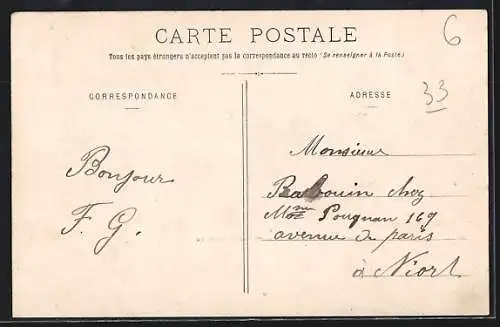 CARTE POSTALE
Tous les pays étrangers n'acceptent pas la correspondance au recto (Se renseigner à la Poste)
CORRESPONDANCE
ADRESSE
6
33
Bonjour
F. G.
Monsieur
chez
Mme Pougnan 169
avenue de paris
à Niort